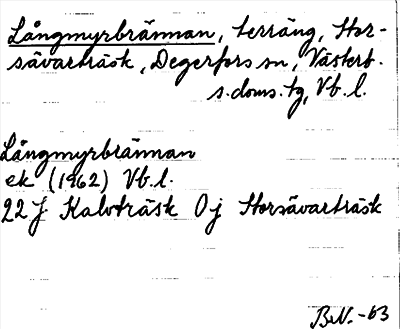 Långmyrbrännan, terräng, Stor-
sävarträsk, Degerfors sn, Västerb.
s.doms.tg, Vb.l.
Långmyrbrännan
ek (1962) Vb.l.
22 J Kalvträsk 0j Storsävarträsk
B.N.-63